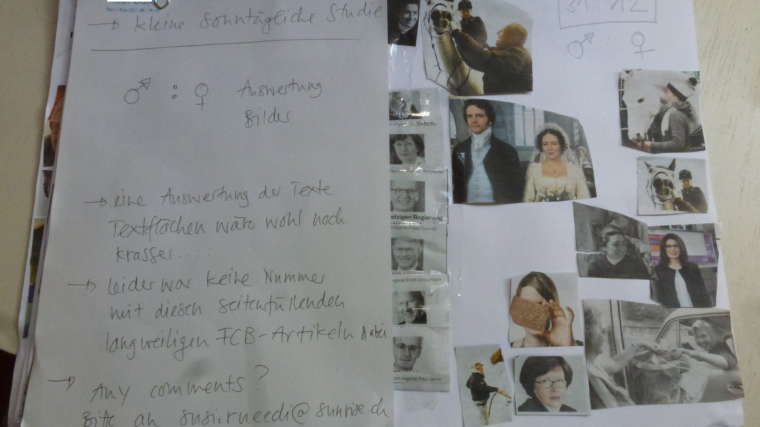 → kleine sonntägliche Studie
♂ : ♀ Auswertung
Bilder
→ eine Auswertung der Texte
Textflächen wäre wohl noch
krasser....
→ leider war keine Nummer
mit diesen seitenfüllenden
langweiligen FCB-Artikeln dabei
→ Any comments?
Bitte an
51:12
♂ ♀
etzigen Regierung